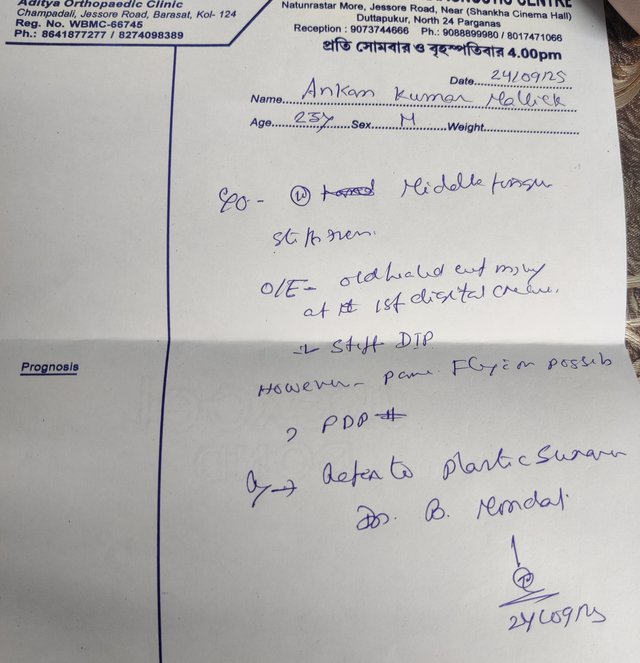 Aditya Orthopaedic Clinic
Champadali, Jessore Road, Barasat, Kol- 124
Reg. No. WBMC-66745
Ph.: 8641877277 / 8274098389
CENTRE
Natunrastar More, Jessore Road, Near (Shankha Cinema Hall)
Duttapukur, North 24 Parganas
Reception : 9073744666 Ph.: 9088899980 / 8017471066
প্রতি সোমবার ও বৃহস্পতিবার 4.00pm
Date 24/09/25
Name Ankan Kumar Mallick
Age 23y Sex M Weight
Middle finger
stiffness.
O/E - old healed cut injury
at 1st digital crease.
Stiff DIP
Prognosis
However - Flexion possib
Refer to plastic surgeon
Dr. B. Mondal
24/09/25